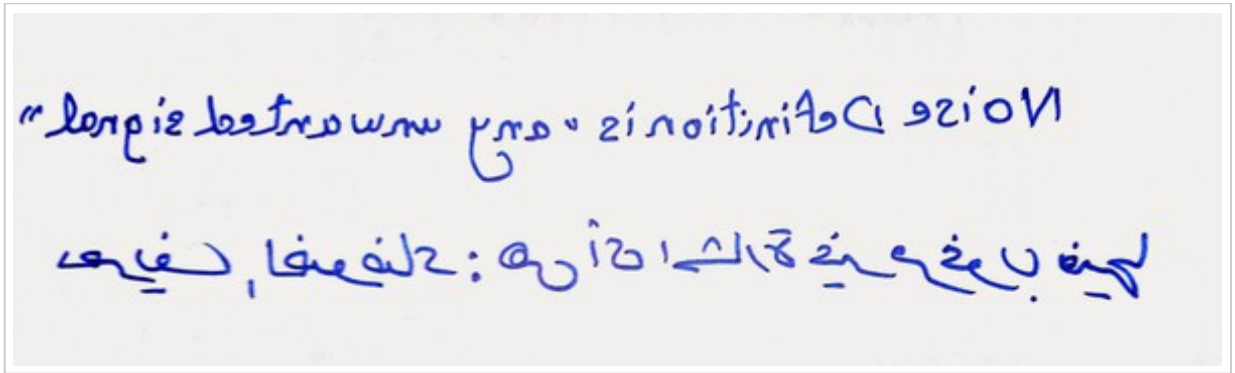 Noise Definition is "any unwanted signal"
أي إشارة غير مرغوب فيها